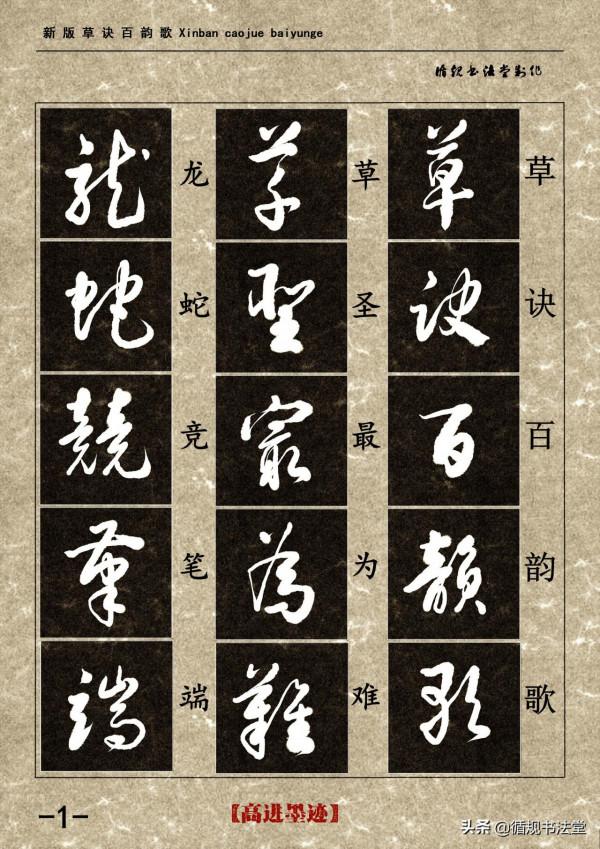 新版草诀百韵歌 Xinban caojue baiyunge
循规书法堂制作
草诀百韵歌
草诀百韵歌
草圣最为难
草圣最为难
龍蛇競筆端
龙蛇竞笔端
-1-
【高进墨迹】
头条 @循规书法堂